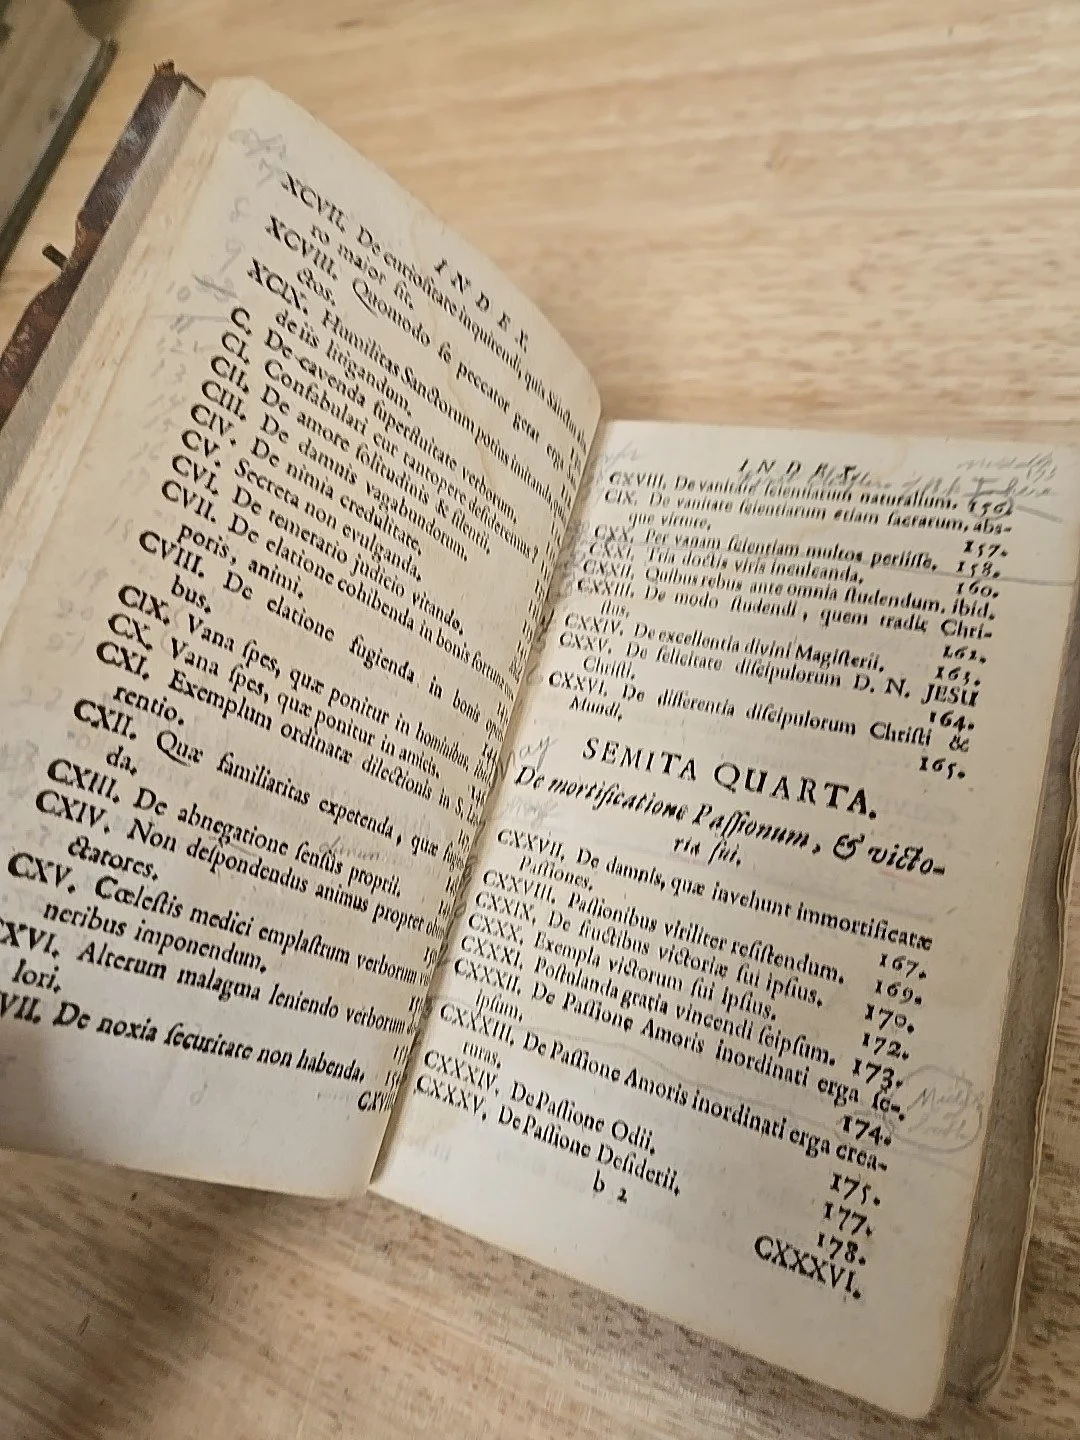 INDEX.
XCVII. De curioſitate inquirendi, quis Sanctus
ro major ſit.
XCVIII. Quomodo ſe peccator gerat erga
ctos.
XCIX. Humilitas Sanctorum potius imitanda, quam
de iis litigandum.
C. De cavenda ſuperfluitate verborum.
CI. Confabulari cur tantopere deſideremus?
CII. De amore ſolitudinis & ſilentii.
CIII. De damnis vagabundorum.
CIV. De nimia credulitate.
CV. Secreta non evulganda.
CVI. De temerario judicio vitando.
CVII. De elatione cohibenda in bonis fortunæ
poris, animi.
CVIII. De elatione fugienda in bonis
bus.
CIX. Vana ſpes, quæ ponitur in hominibus.
CX. Vana ſpes, quæ ponitur in amicis.
CXI. Exemplum ordinatæ dilectionis in S.
rentio.
CXII. Quæ familiaritas expetenda, quæ
da.
CXIII. De abnegatione ſenſus proprii.
CXIV. Non deſpondendus animus propter
ctatores.
CXV. Cœleſtis medici emplaſtrum verborum
neribus imponendum.
XVI. Alterum malagma leniendo verborum
lori.
VII. De noxia ſecuritate non habenda.
CXVIII
INDEX.
CXVIII. De vanitate ſcientiarum naturalium. 156.
CIX. De vanitate ſcientiarum etiam ſacrarum, abs-
que virtute. 157.
CXX. Per vanam ſcientiam multos periiſſe. 158.
CXXI. Tria doctis viris inculcanda. 160.
CXXII. Quibus rebus ante omnia ſtudendum. ibid.
CXXIII. De modo ſtudendi, quem tradit Chri-
ſtus. 161.
CXXIV. De excellentia divini Magiſterii. 163.
CXXV. De felicitate diſcipulorum D. N. JESU
Chriſti. 164.
CXXVI. De differentia diſcipulorum Chriſti &
Mundi. 165.
SEMITA QUARTA.
De mortificatione Paſſionum, & victo-
ria ſui.
CXXVII. De damnis, quæ invehunt immortificatæ
Paſſiones. 167.
CXXVIII. Paſſionibus viriliter reſiſtendum. 169.
CXXIX. De fructibus victoriæ ſui ipſius. 170.
CXXX. Exempla victorum ſui ipſius. 172.
CXXXI. Poſtulanda gratia vincendi ſeipſum. 173.
CXXXII. De Paſſione Amoris inordinati erga ſe-
ipſum. 174.
CXXXIII. De Paſſione Amoris inordinati erga crea-
turas. 175.
CXXXIV. De Paſſione Odii. 177.
CXXXV. De Paſſione Deſiderii. 178.
b 2
CXXXVI.